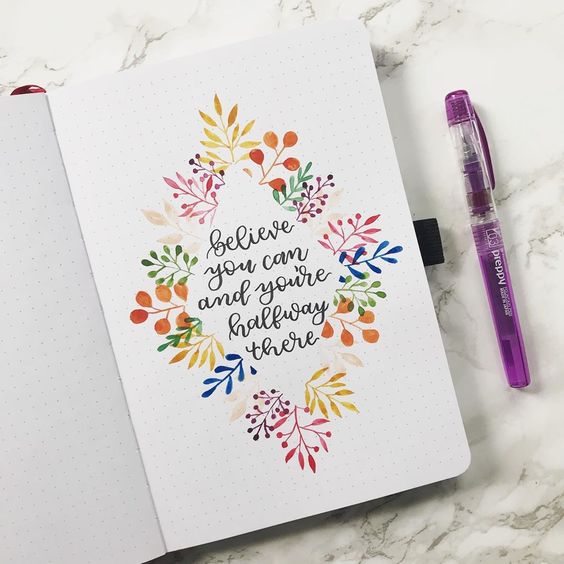 believe
you can
and you're
halfway
there
preppy